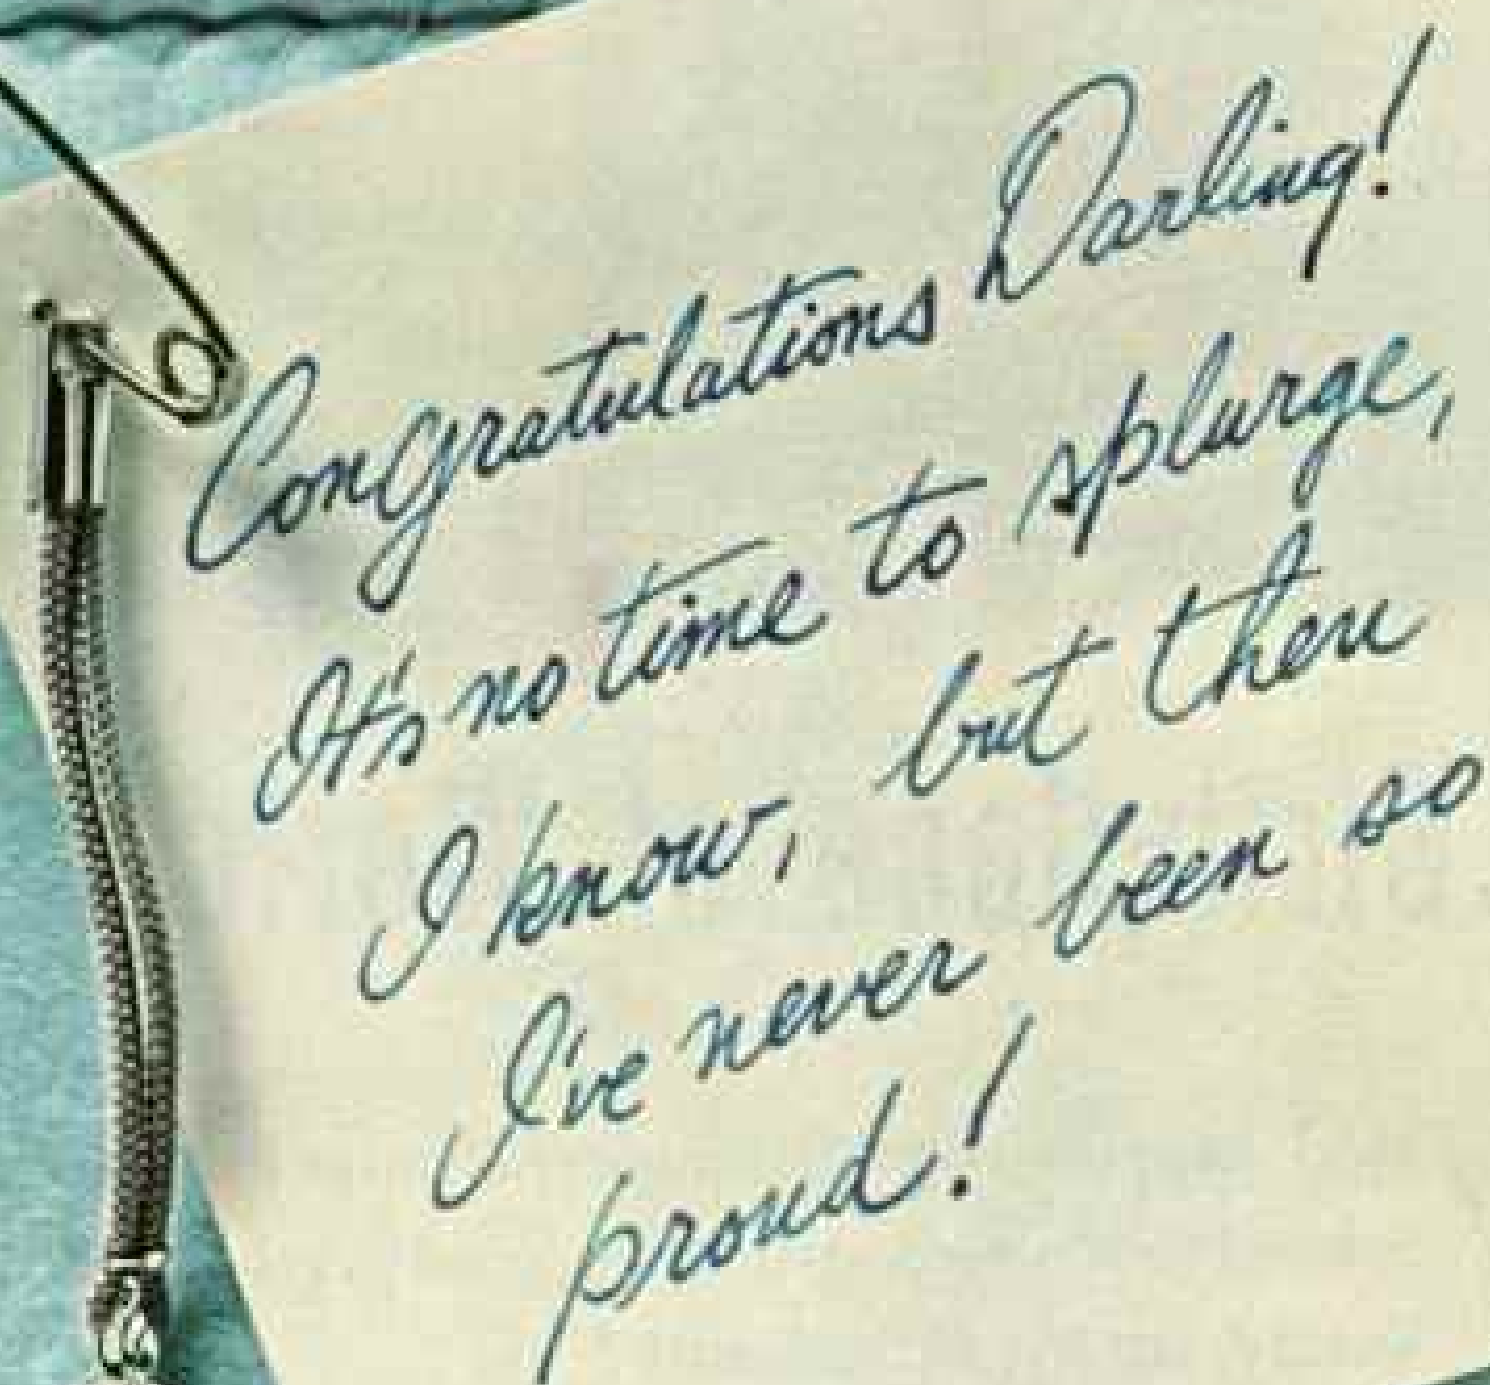 Congratulations Darling!
It's no time to splurge,
I know, but then
I've never been so
proud!